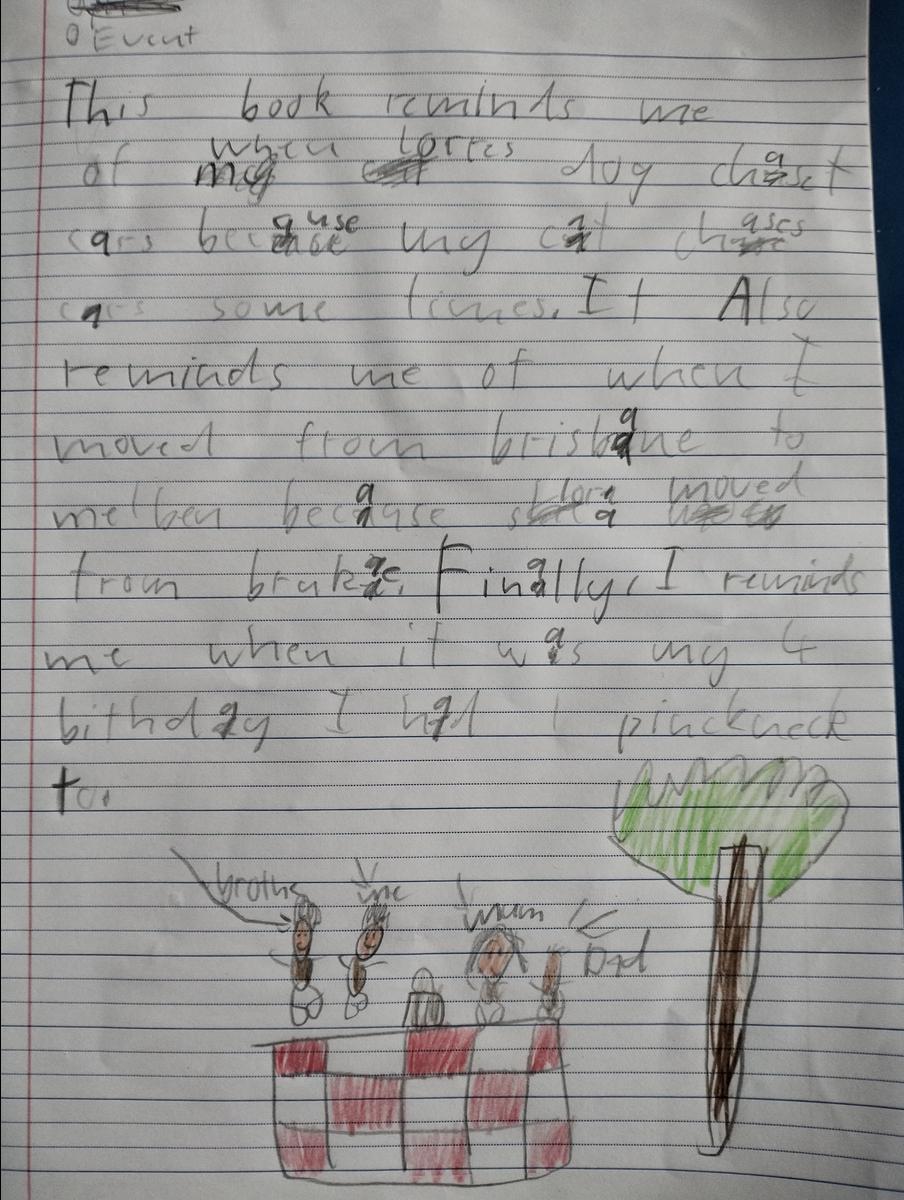 0 Event
This book reminds me
of when lorres dog chaset
cars because my cat chases
cars some times. It Also
reminds me of when I
moved from brisbane to
melben because moved
from Finally, I reminds
me when it was my 4
bithday I had 1 pinckneck
to.
brothe
me
mum
Dad